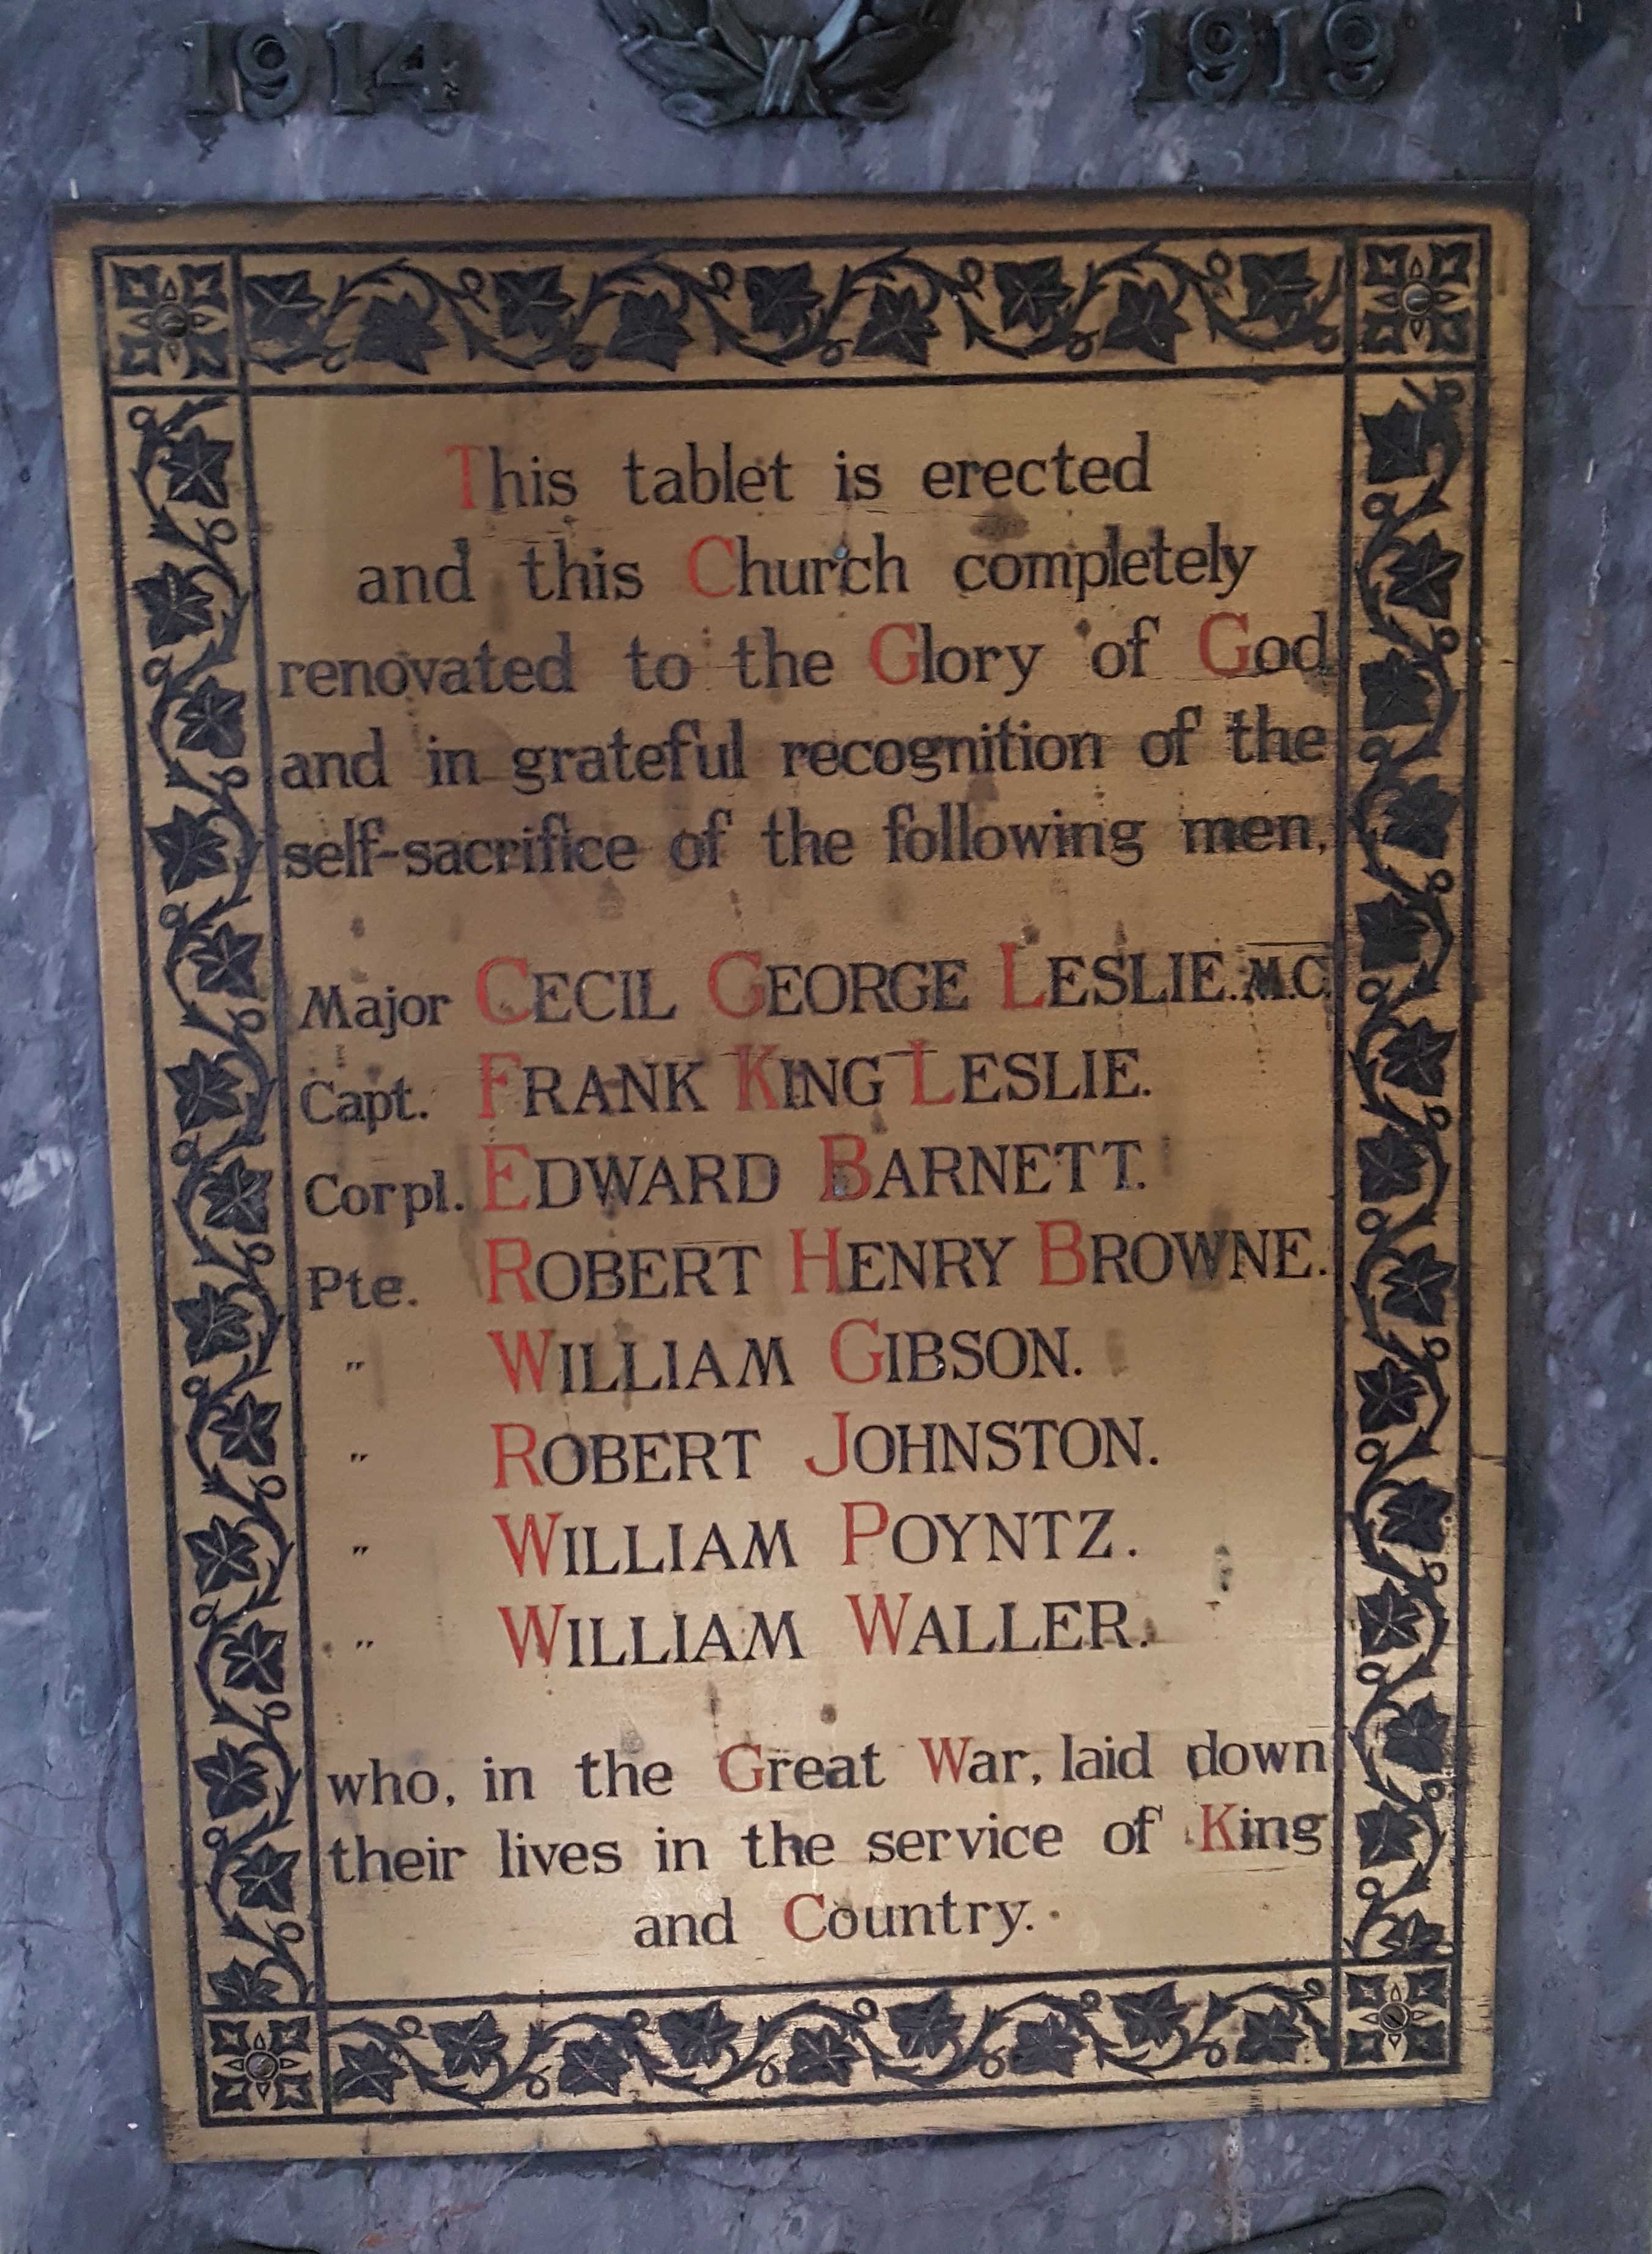 1914 1919
This tablet is erected
and this Church completely
renovated to the Glory of God
and in grateful recognition of the
self-sacrifice of the following men,
Major CECIL GEORGE LESLIE. M.C.
Capt. FRANK KING LESLIE.
Corpl. EDWARD BARNETT.
Pte. ROBERT HENRY BROWNE.
" WILLIAM GIBSON.
" ROBERT JOHNSTON.
" WILLIAM POYNTZ.
" WILLIAM WALLER.
who, in the Great War, laid down
their lives in the service of King
and Country.